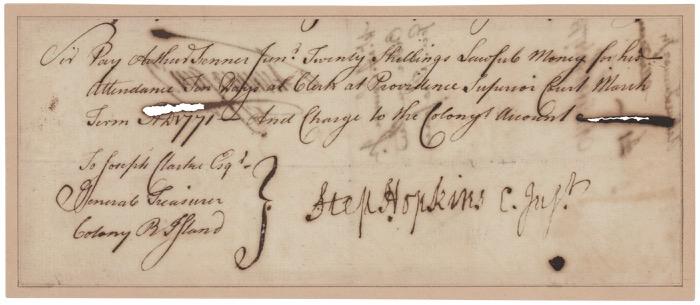 Sir Pay Arthur Fenner Junr. Twenty Shillings Lawfull Money for his
Attendance Ten Days as Clerk at Providence Superior Court March
Term AD 1771 And Charge to the Colony's Account
To Joseph Clarke Esqr.
General Treasurer
Colony R Island
Step Hopkins C. Just.